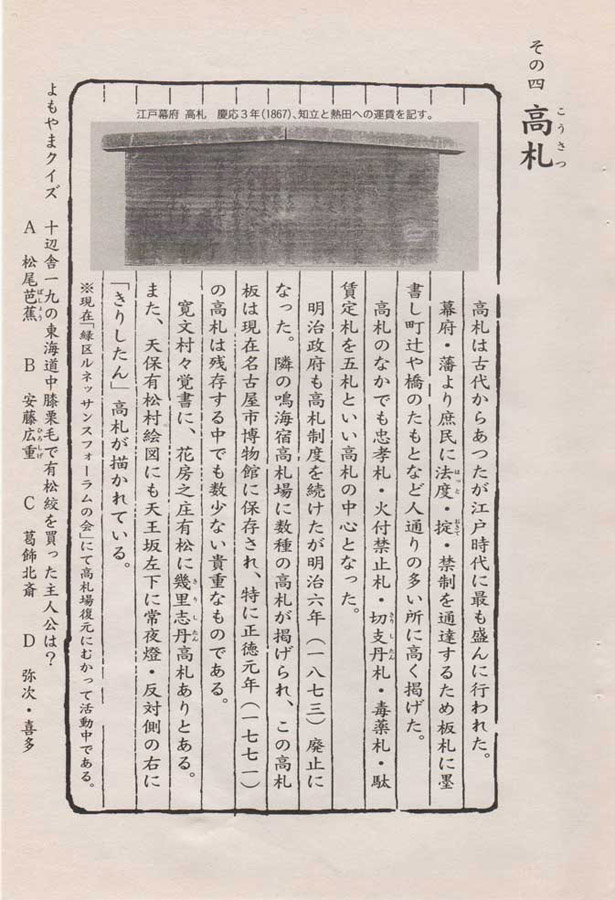 その四 高札
こうさつ
江戸幕府 高札 慶応3年(1867)、知立と熱田への運賃を記す。
高札は古代からあつたが江戸時代に最も盛んに行われた。
幕府・藩より庶民に法度・掟・禁制を通達するため板札に墨
書し町辻や橋のたもとなど人通りの多い所に高く掲げた。
高札のなかでも忠孝札・火付禁止札・切支丹札・毒薬札・駄
賃定札を五札といい高札の中心となった。
明治政府も高札制度を続けたが明治六年(一八七三)廃止に
なった。隣の鳴海宿高札場に数種の高札が掲げられ、この高札
板は現在名古屋市博物館に保存され、特に正徳元年(一七七一)
の高札は残存する中でも数少ない貴重なものである。
寛文村々覚書に、花房之庄有松に幾里志丹高札ありとある。
また、天保有松村絵図にも天王坂左下に常夜燈・反対側の右に
「きりしたん」高札が描かれている。
※現在「緑区ルネッサンスフォーラムの会」にて高札場復元にむかって活動中である。
よもやまクイズ 十辺舎一九の東海道中膝栗毛で有松絞を買った主人公は?
A 松尾芭蕉 B 安藤広重 C 葛飾北斎 D 弥次・喜多